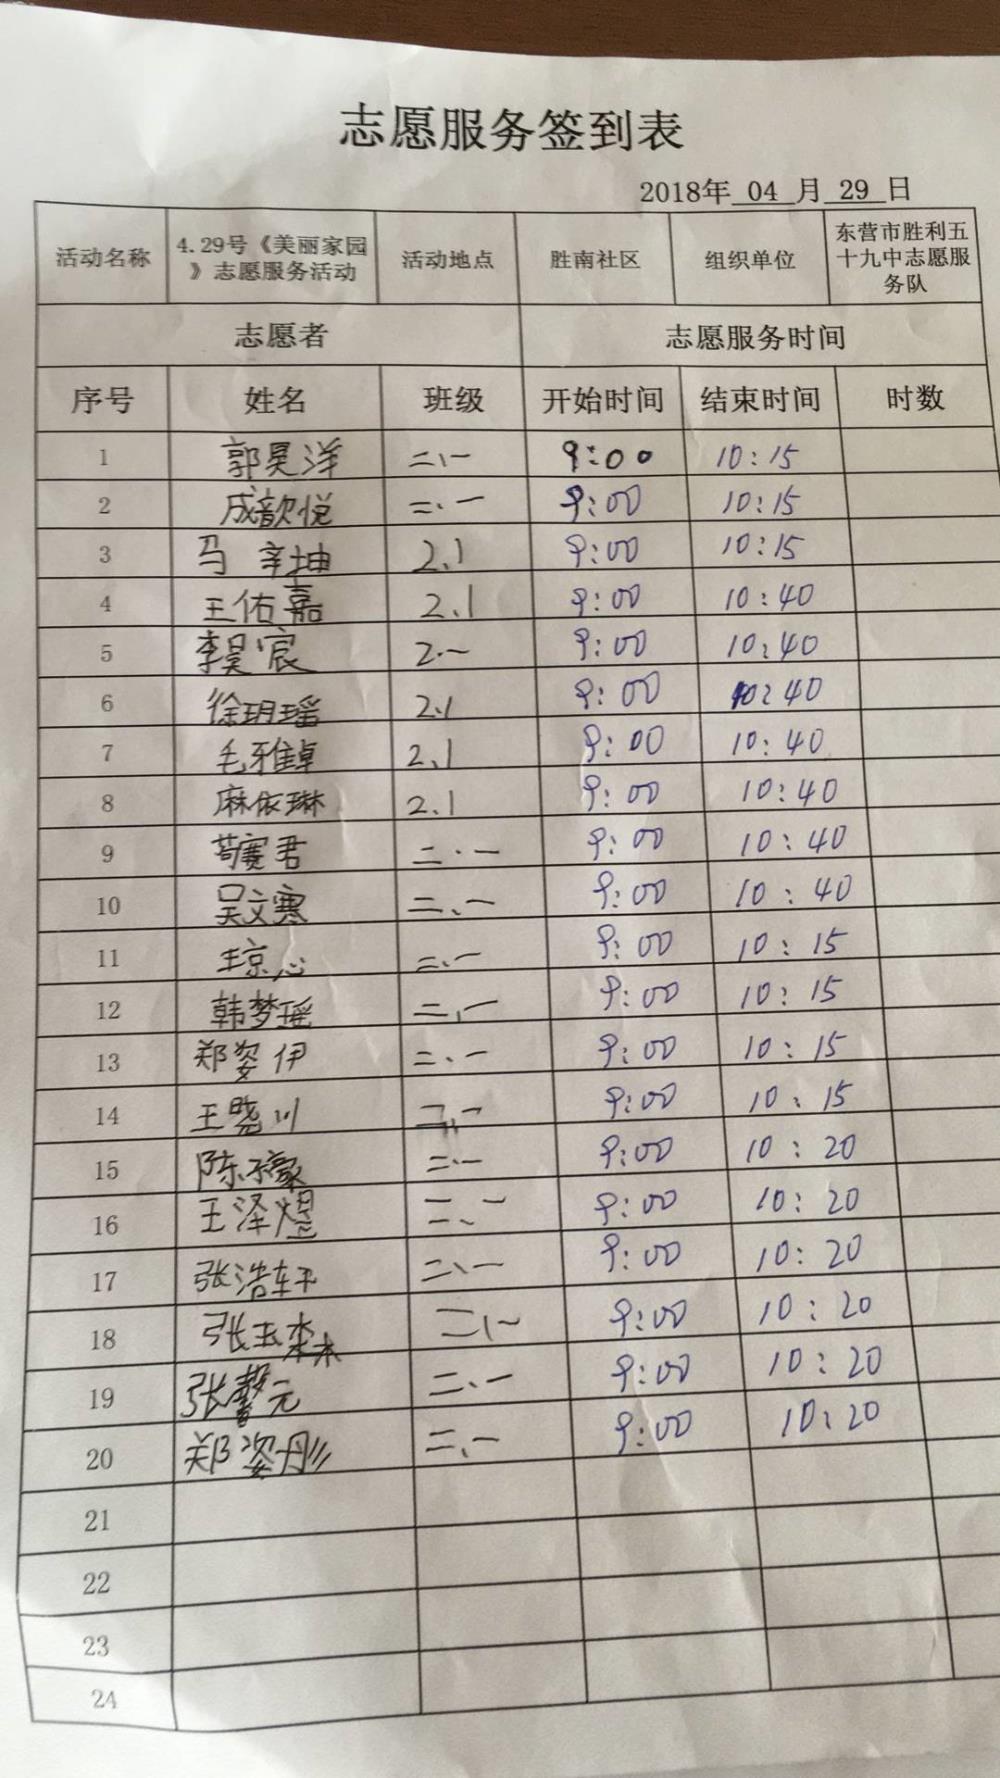 志愿服务签到表
2018年 04 月 29 日
活动名称 4.29号《美丽家园》志愿服务活动 活动地点 胜南社区 组织单位 东营市胜利五十九中志愿服务队
志愿者 志愿服务时间
序号 姓名 班级 开始时间 结束时间 时数
1 郭昊洋 二、一 9:00 10:15
2 成歆悦 二、一 9:00 10:15
3 马辛坤 2.1 9:00 10:15
4 王佑嘉 2.1 9:00 10:40
5 李昊宸 2.一 9:00 10:40
6 徐玥瑶 2.1 9:00 10:40
7 毛雅卓 2.1 9:00 10:40
8 麻依琳 2.1 9:00 10:40
9 苟赛君 二·一 9:00 10:40
10 吴文寒 二、一 9:00 10:40
11 王京心 二、一 9:00 10:15
12 韩梦瑶 二、一 9:00 10:15
13 郑姿伊 二、一 9:00 10:15
14 王晓川 二、一 9:00 10:15
15 陈 二、一 9:00 10:20
16 王泽煜 二、一 9:00 10:20
17 张浩轩 二、一 9:00 10:20
18 张玉森 二、一 9:00 10:20
19 张馨元 二、一 9:00 10:20
20 郑姿彤 二、一 9:00 10:20
21
22
23
24